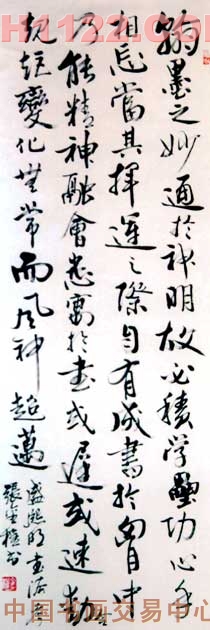 翰墨之妙通於神明故必積学累功心手
相忘當其揮運之際自有成書於胸中
乃能精神融會悉寓於書或遲或速動
規矩變化無常而風神超邁
盛熙明書法考
張
H1122.COM
中国书画交易中心